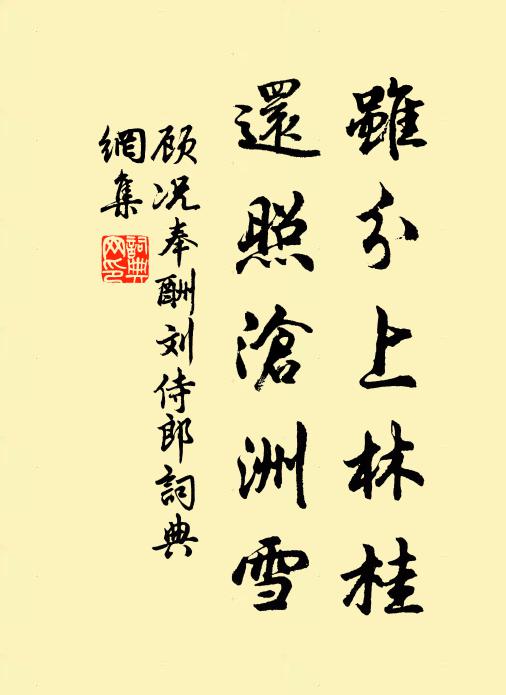 雖分上林桂
還照滄洲雪
顾况奉酬刘侍郎詞典
網集
詞典网印